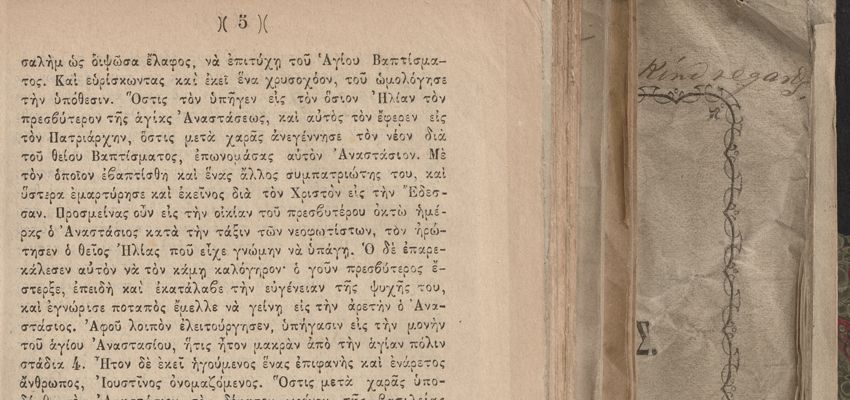 )( 5 )(
σαλὴμ ὡς διψῶσα ἔλαφος, νὰ ἐπιτύχῃ τοῦ Ἁγίου Βαπτίσμα-
τος. Καὶ εὑρίσκωντας καὶ ἐκεῖ ἕνα χρυσοχόον, τοῦ ὡμολόγησε
τὴν ὑπόθεσιν. Ὅστις τὸν ὑπῆγεν εἰς τὸν ὅσιον Ἠλίαν τὸν
πρεσβύτερον τῆς ἁγίας Ἀναστάσεως, καὶ αὐτὸς τὸν ἔφερεν εἰς
τὸν Πατριάρχην, ὅστις μετὰ χαρᾶς ἀνεγέννησε τὸν νέον διὰ
τοῦ θείου Βαπτίσματος, ἐπωνομάσας αὐτὸν Ἀναστάσιον. Μὲ
τὸν ὁποῖον ἐβαπτίσθη καὶ ἕνας ἄλλος συμπατριώτης του, καὶ
ὕστερα ἐμαρτύρησε καὶ ἐκεῖνος διὰ τὸν Χριστὸν εἰς τὴν Ἔδεσ-
σαν. Προσμείνας οὖν εἰς τὴν οἰκίαν τοῦ πρεσβυτέρου ὀκτὼ ἡμέ-
ρας ὁ Ἀναστάσιος κατὰ τὴν τάξιν τῶν νεοφωτίστων, τὸν ἠρώ-
τησεν ὁ θεῖος Ἠλίας ποῦ εἶχε γνώμην νὰ ὑπάγῃ. Ὁ δὲ ἐπαρε-
κάλεσεν αὐτὸν νὰ τὸν κάμῃ καλόγηρον· ὁ γοῦν πρεσβύτερος ἔ-
στερξε, ἐπειδὴ καὶ ἐκατάλαβε τὴν εὐγένειαν τῆς ψυχῆς του,
καὶ ἐγνώρισε ποταπὸς ἔμελλε νὰ γείνῃ εἰς τὴν ἀρετὴν ὁ Ἀνα-
στάσιος. Ἀφοῦ λοιπὸν ἐλειτούργησεν, ὑπήγασιν εἰς τὴν μονὴν
τοῦ ἁγίου Ἀναστασίου, ἥτις ἦτον μακρὰν ἀπὸ τὴν ἁγίαν πόλιν
στάδια 4. Ἦτον δὲ ἐκεῖ ἡγούμενος ἕνας ἐπιφανὴς καὶ ἐνάρετος
ἄνθρωπος, Ἰουστῖνος ὀνομαζόμενος. Ὅστις μετὰ χαρᾶς ὑπο-
Kind regards,
Σ